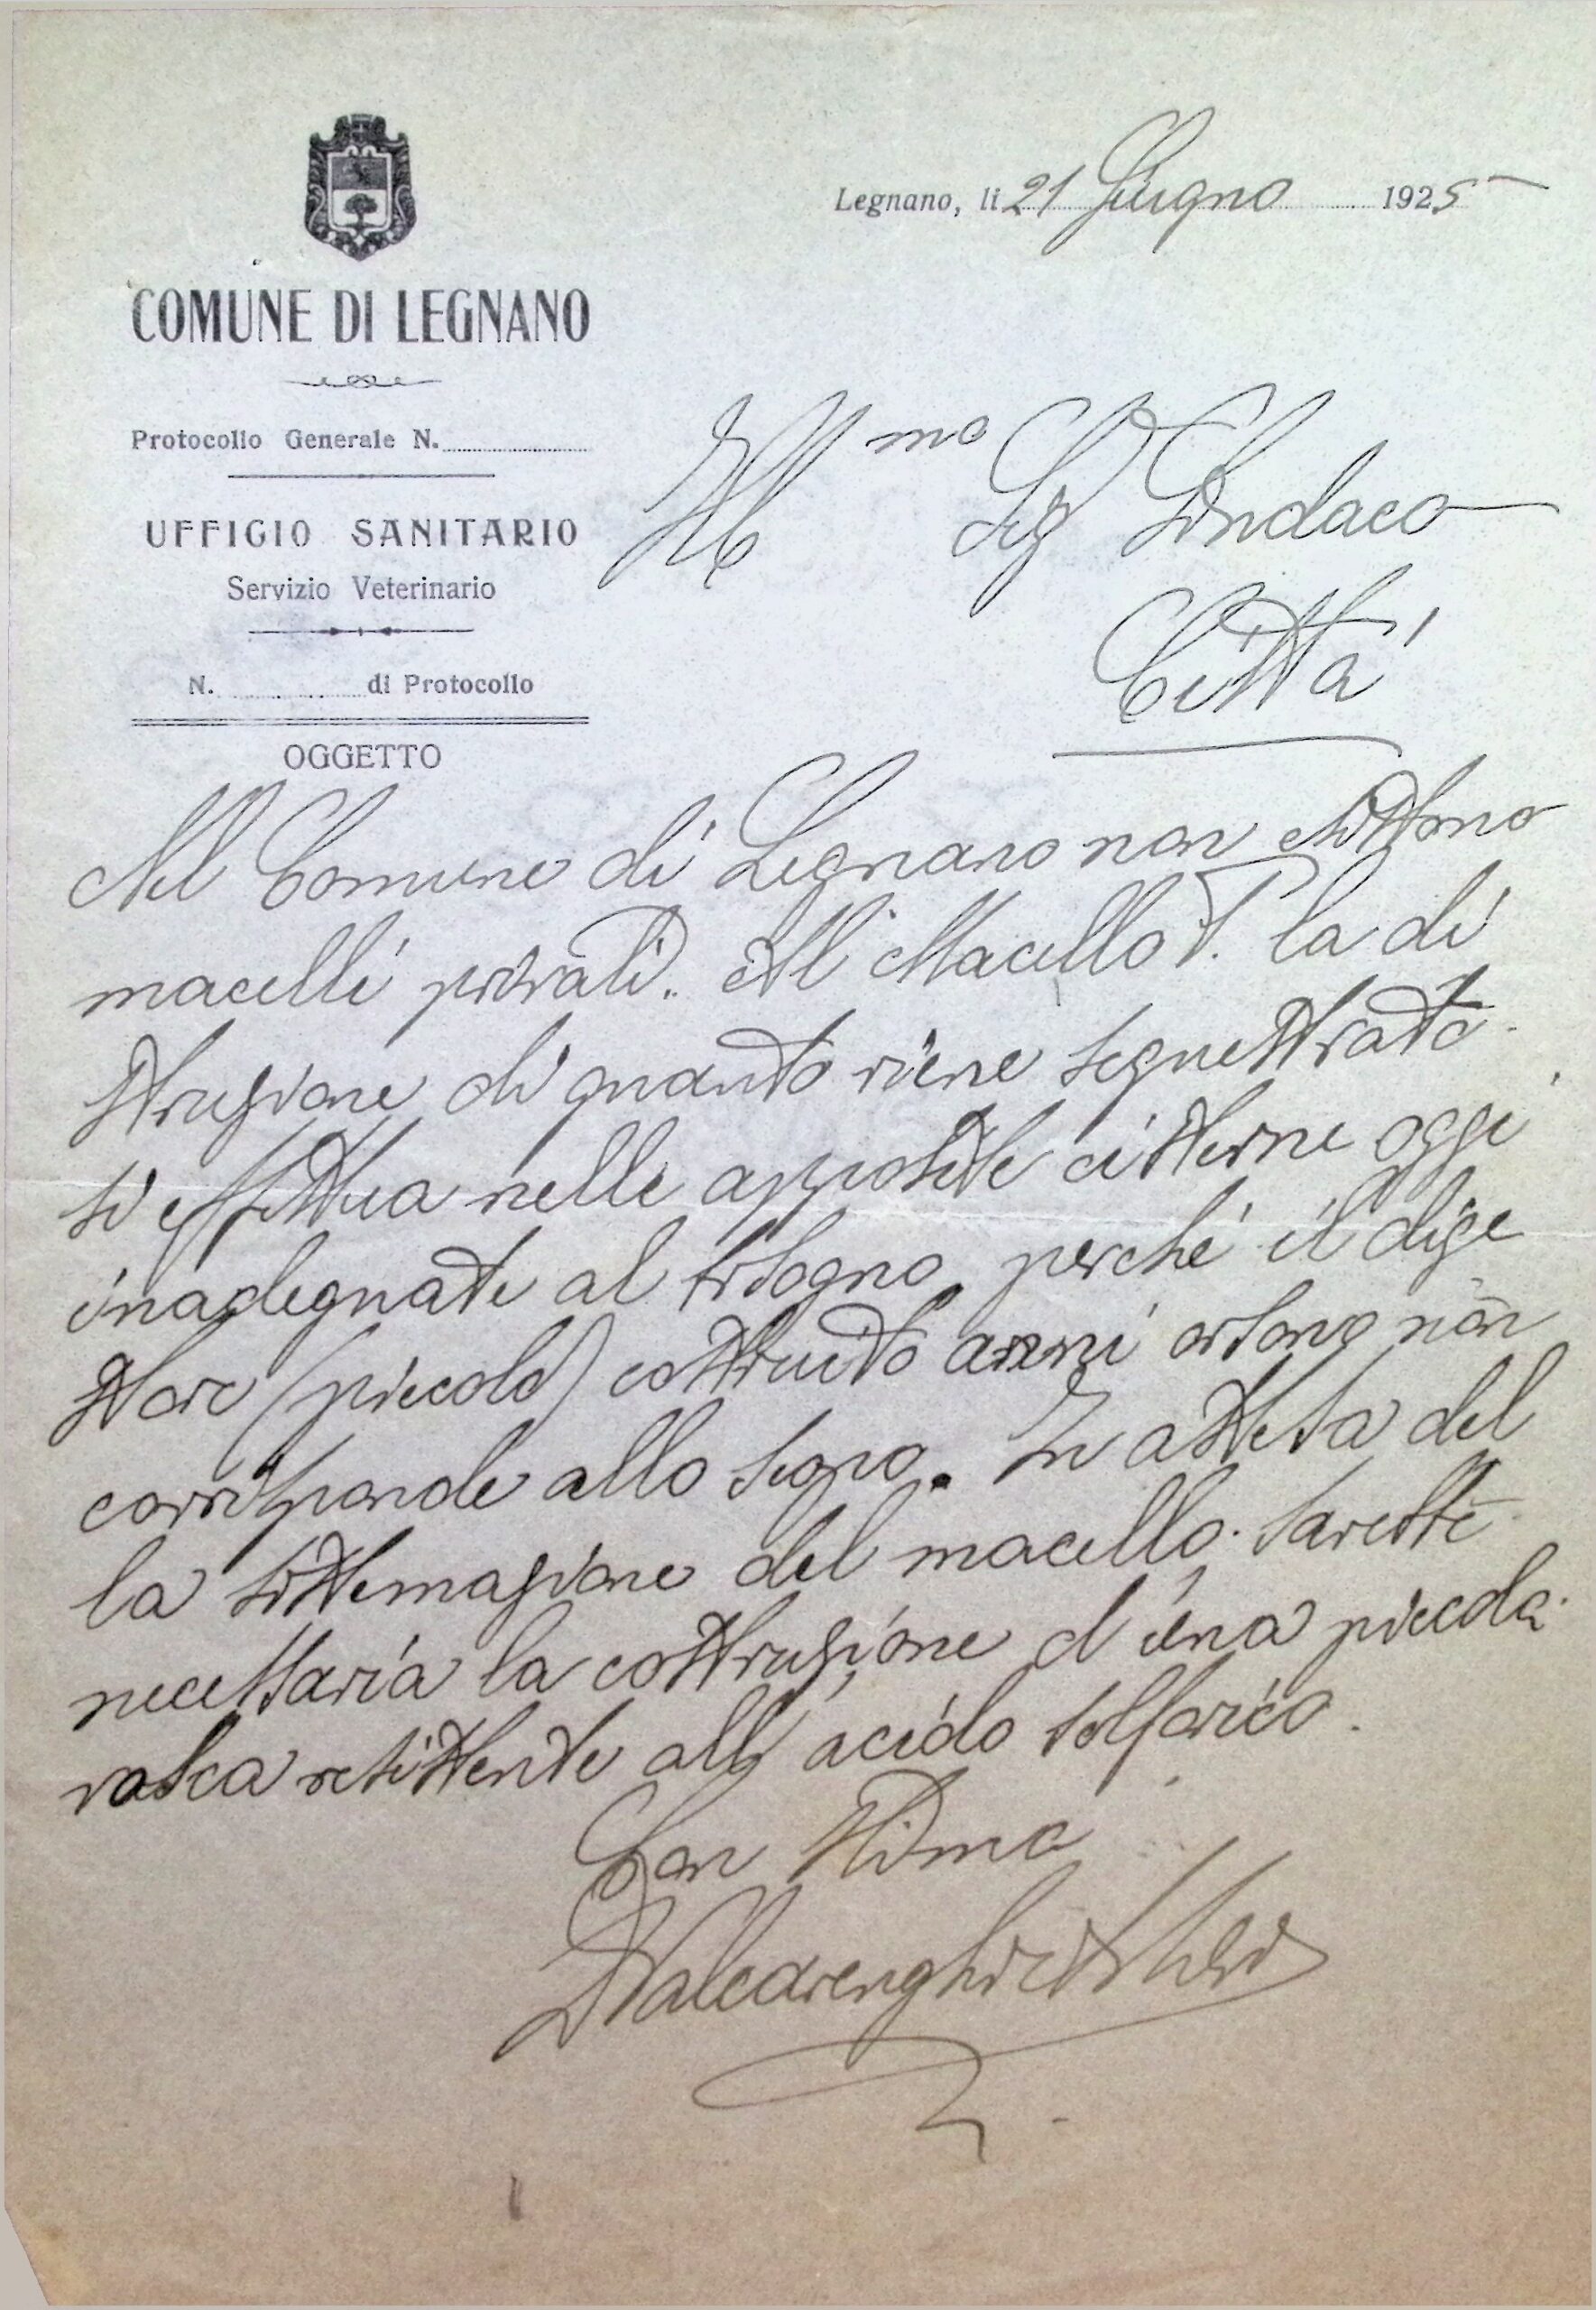 Legnano, li 21 Giugno 1925
COMUNE DI LEGNANO
Protocollo Generale N.
UFFICIO SANITARIO
Servizio Veterinario
N. di Protocollo
OGGETTO
Ill mo Sig Sindaco
Città
Nel Comune di Legnano non esistono
macelli privati. Al Macello P. la di
struzione di quanto viene sequestrato
si effettua nelle apposite cisterne oggi
inadeguate al bisogno, perché il dige
store (piccolo) costruito anni or sono non
corrisponde allo scopo. In attesa del
la sistemazione del macello sarebbe
necessaria la costruzione d'una piccola
vasca resistente all'acido solforico.
Con stima